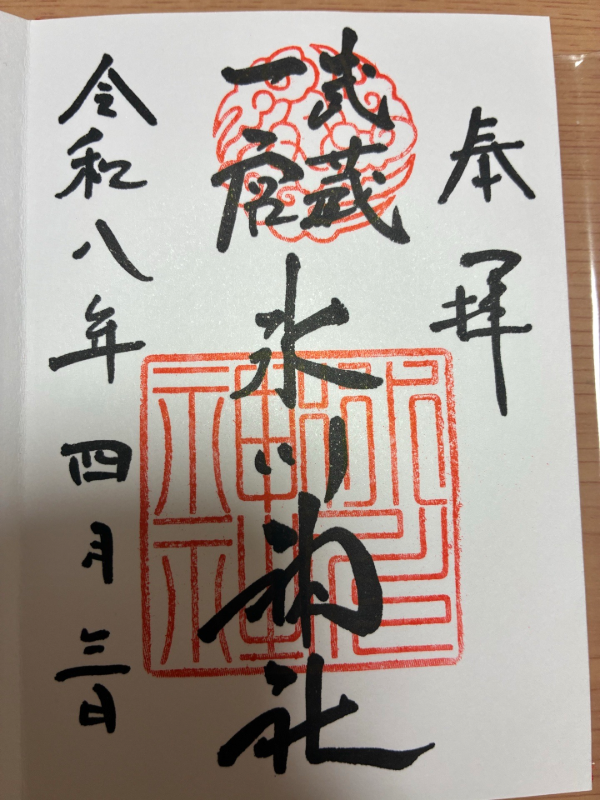 奉拝
武蔵
一宮
氷川神社
令和八年四月三日